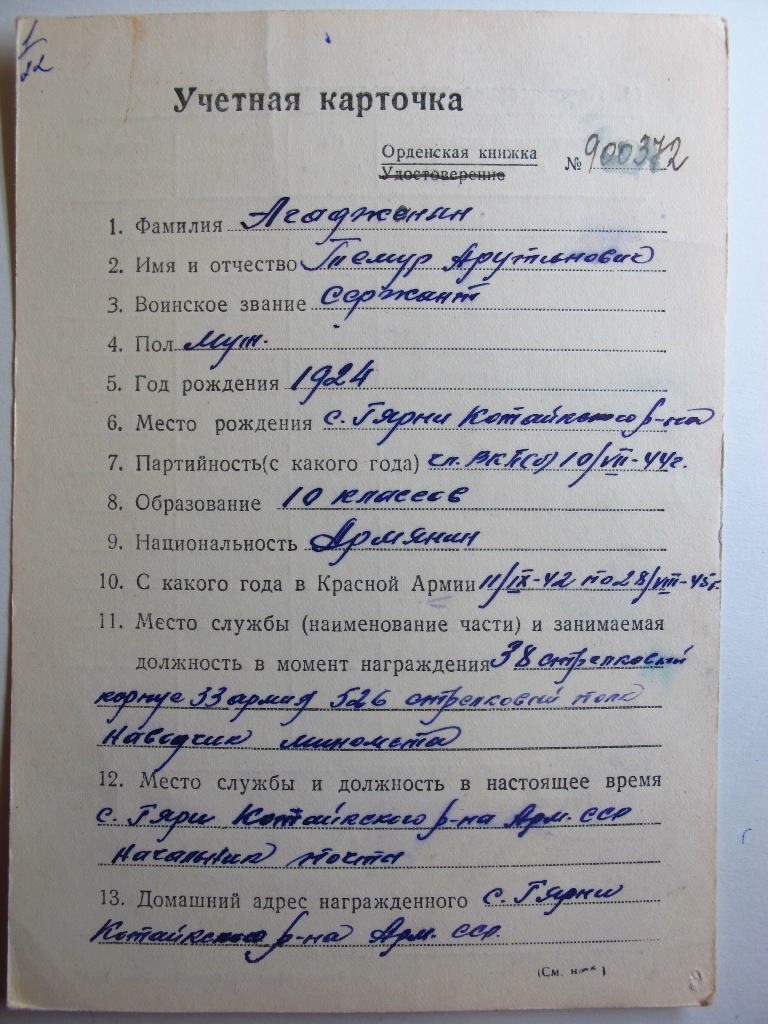 1/22
Учетная карточка
Орденская книжка
Удостоверение
№ 900372
1. Фамилия Агаджанян
2. Имя и отчество Темур Арутюнович
3. Воинское звание Сержант
4. Пол Муж.
5. Год рождения 1924
6. Место рождения с. Гярни Котайкского р-на
7. Партийность(с какого года) чл. ВКП(б) 10/VII-44г.
8. Образование 10 классов
9. Национальность Армянин
10. С какого года в Красной Армии 11/IX-42 по 28/VIII-45г.
11. Место службы (наименование части) и занимаемая
должность в момент награждения 38 стрелковый
корпус 33 армия 526 стрелковый полк
Наводчик миномета
12. Место службы и должность в настоящее время
с. Гярни Котайкского р-на Арм. ССР
Начальник почты
13. Домашний адрес награжденного с. Гярни
Котайкского р-на Арм. ССР.
(См. н/об)